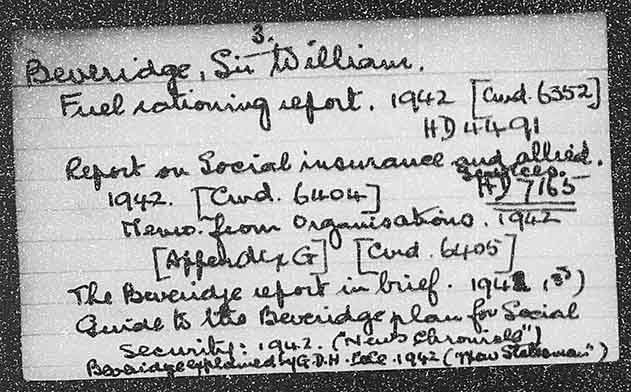 3.
Beveridge, Sir William.
Fuel rationing report. 1942 [Cmd. 6352]
HD 4491
Report on Social insurance and allied.
Services.
1942. [Cmd. 6404] HD 7165
Memo. from Organisations. 1942
[Appendix G] [Cmd. 6405]
The Beveridge report in brief. 1942
Guide to the Beveridge plan for Social
Security: 1942. ("News Chronicle")
Beveridge explained by G.D.H. Cole. 1942 ("New Statesman")